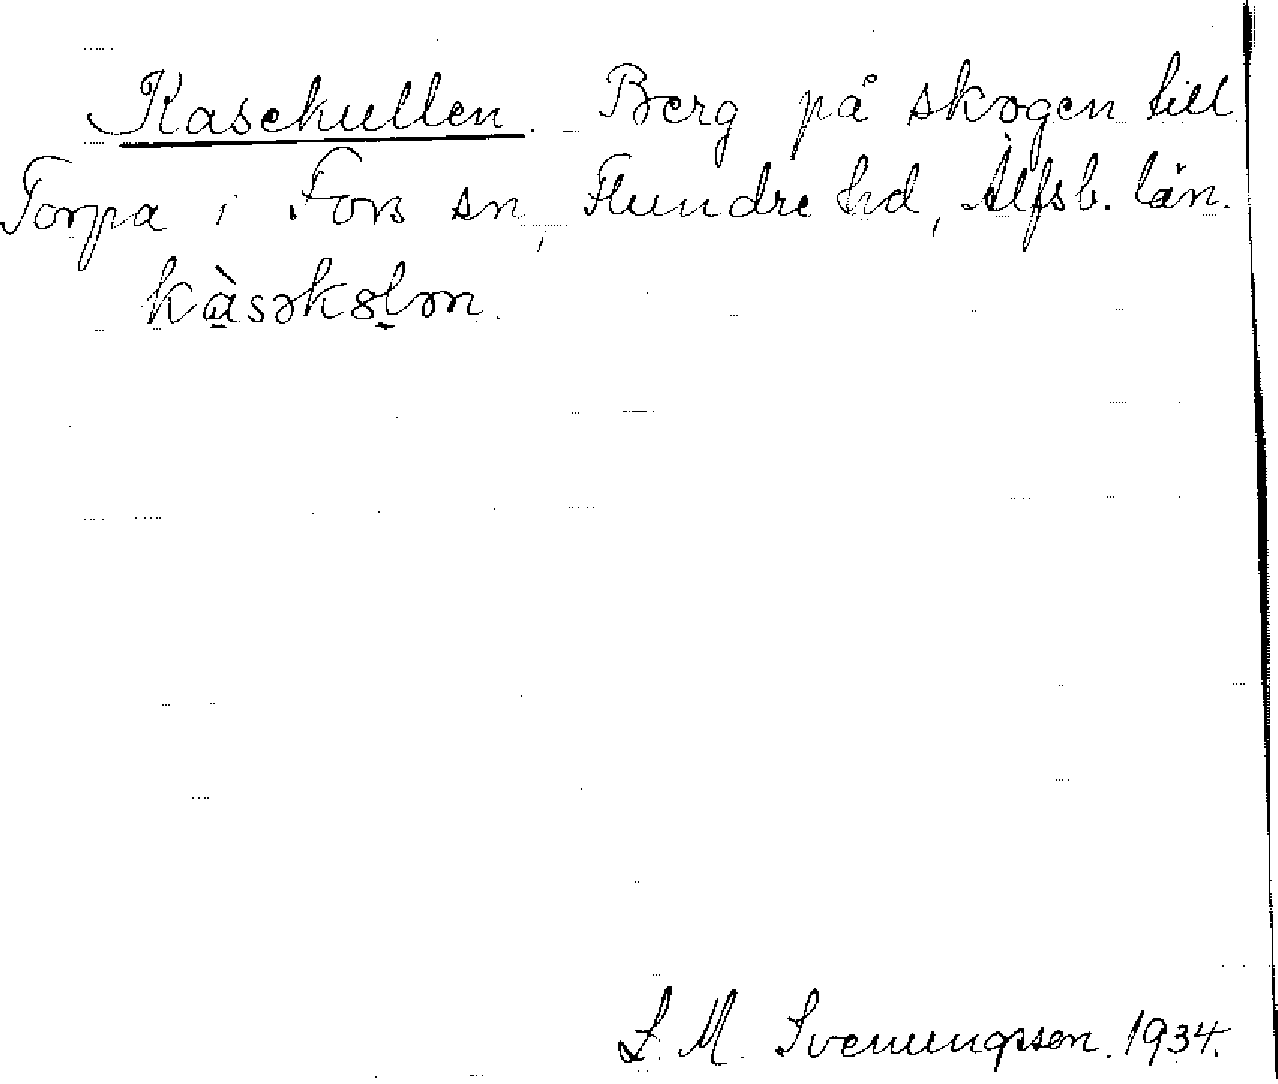 Kasekullen. Berg på skogen till
Torpa i Fors sn, Flundre hd, Älfsb. län.
kàsəkƨlən.
S. M. Svenungsson. 1934.